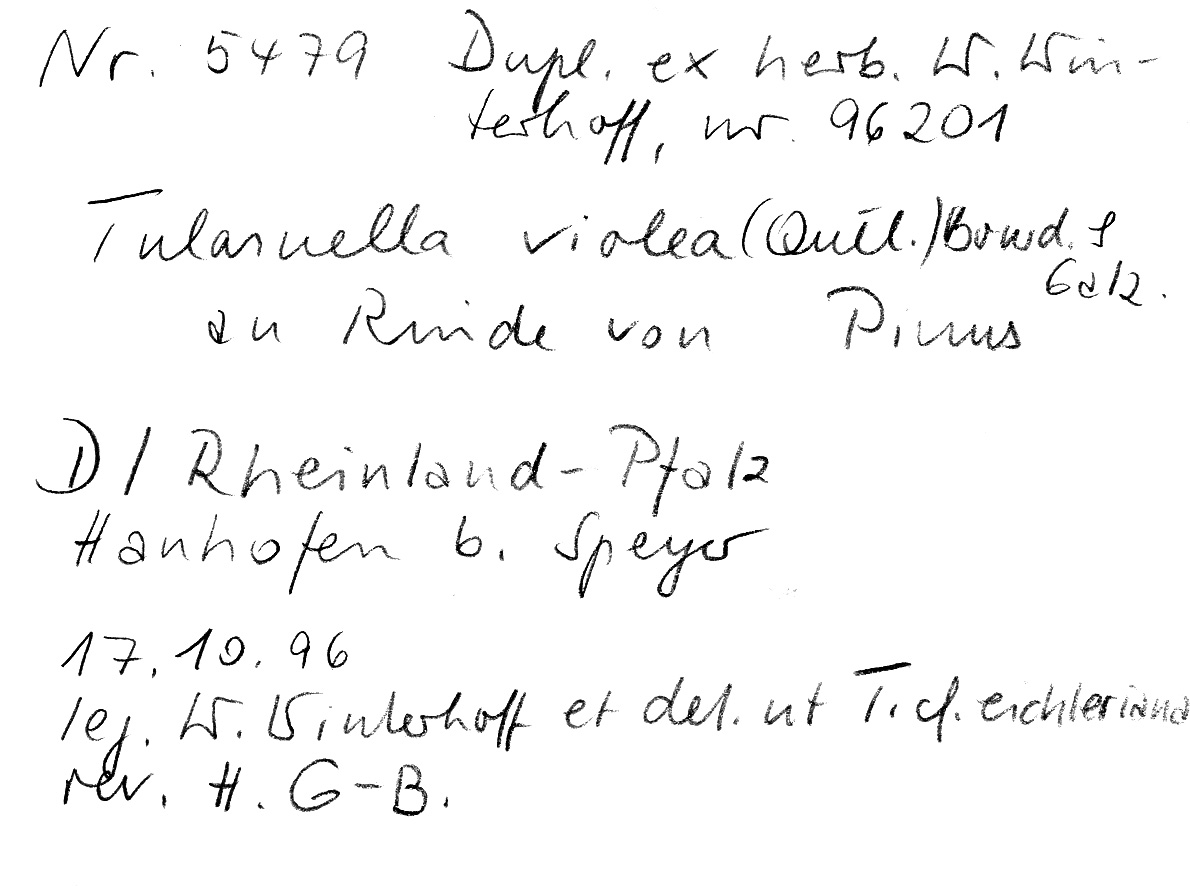 Nr. 5479 Dupl. ex herb. W. Win-
terhoff, nr. 96201
Tulasnella violea (Quél.) Bourd. &
Galz.
an Rinde von Pinus
D/ Rheinland-Pfalz
Hanhofen b. Speyer
17.10.96
leg. W. Winterhoff et det. ut T. cf. eichleriana
rev. H. G-B.